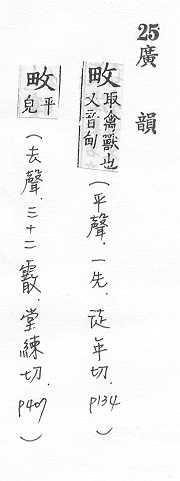 25 廣韻
畋 取禽獸也又音甸
(平聲.一先.徒年切.P134)
畋 平皃
(去聲.三十二霰.堂練切.P407)